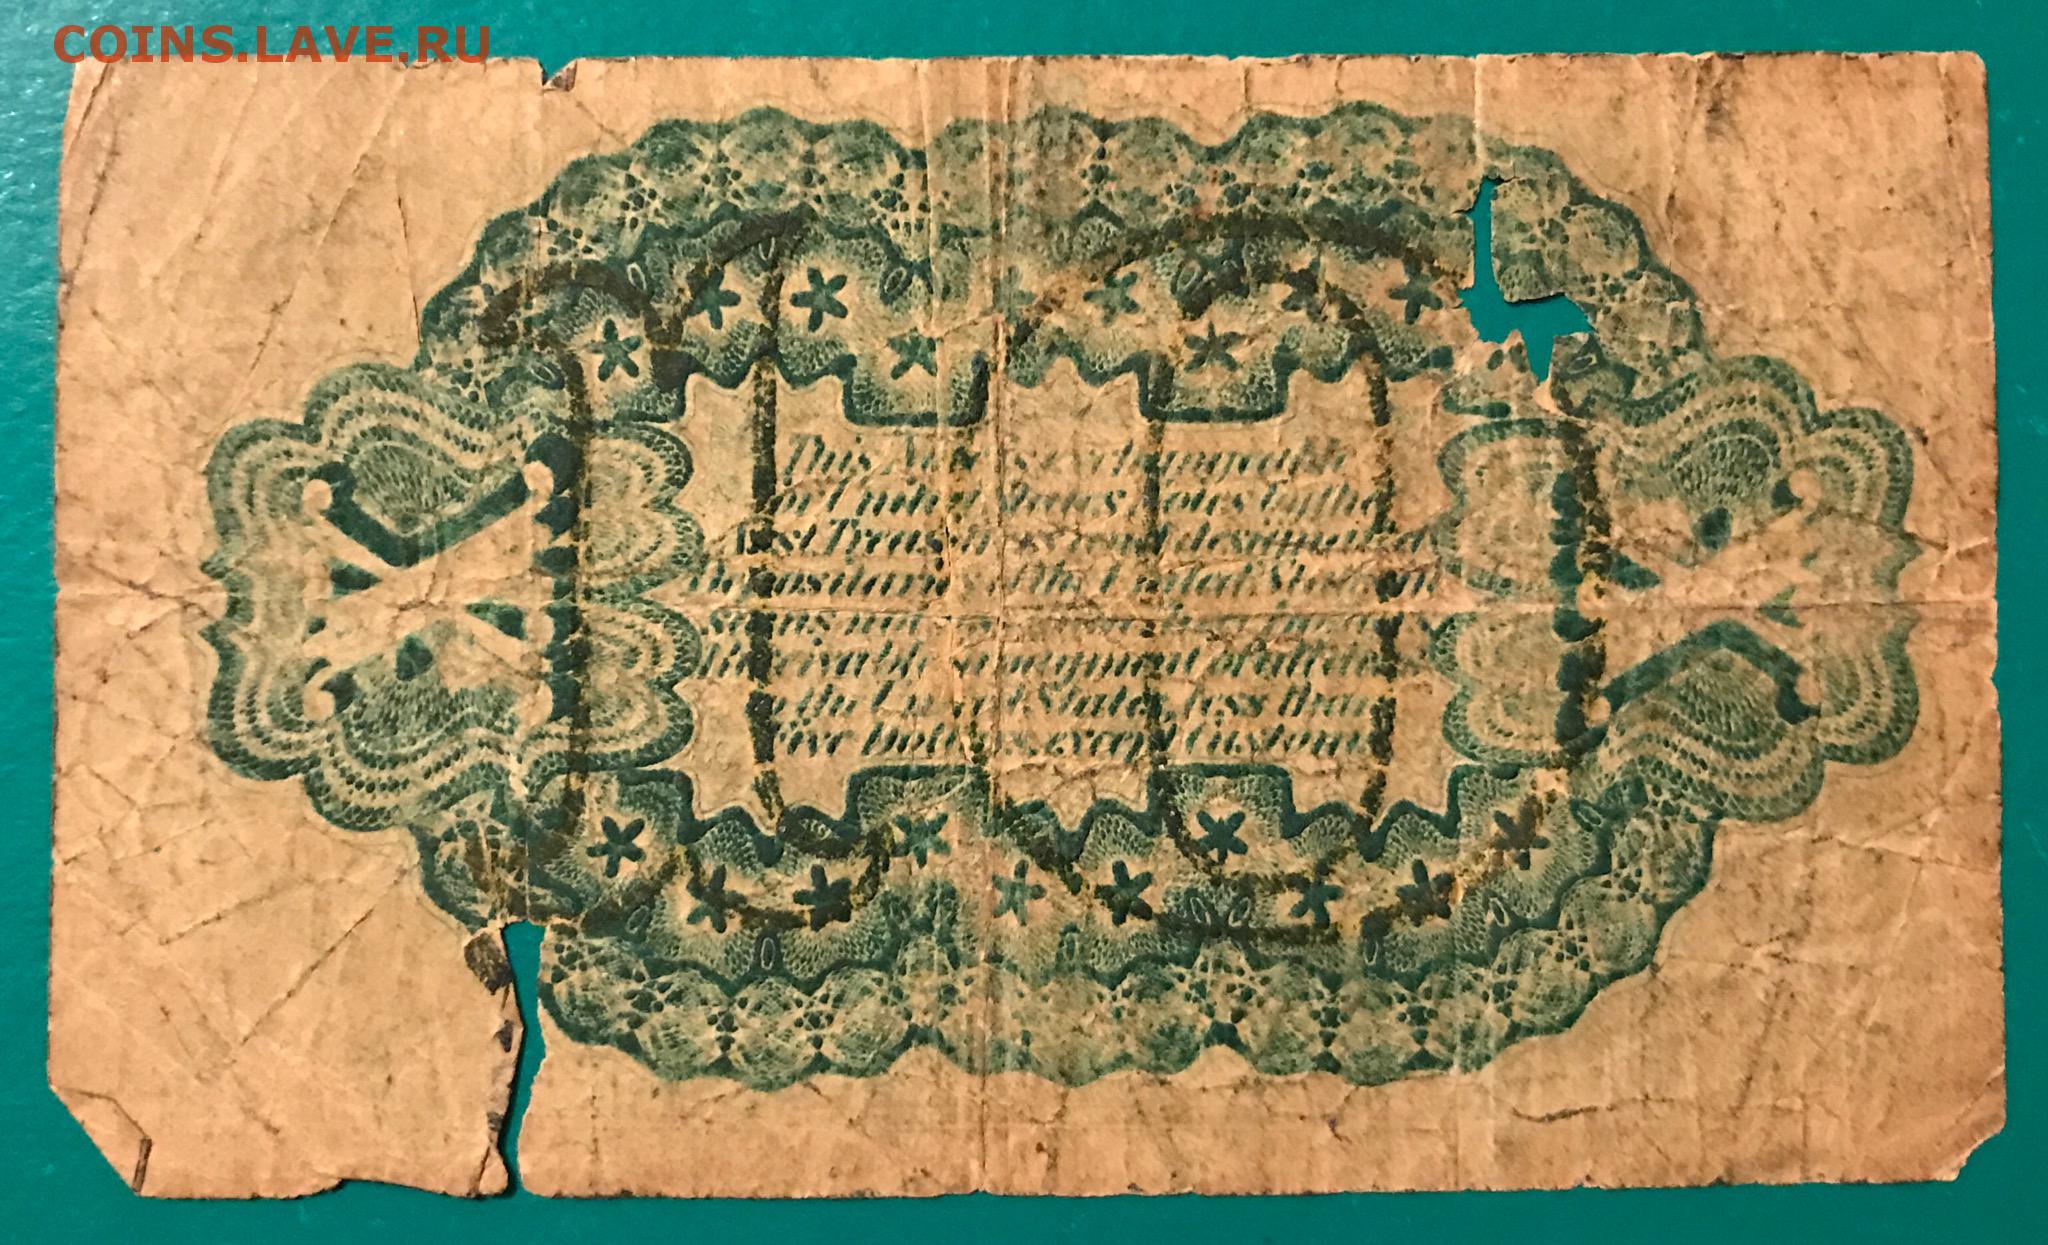 COINS.LAVE.RU
This Note is exchangeable
for United States Notes by the
Assist. Treasurers and designated
Depositaries of the United States in
sums not
Receivable in payment of all dues
to the United States, less than
Five Dollars, except Customs.
X X
10